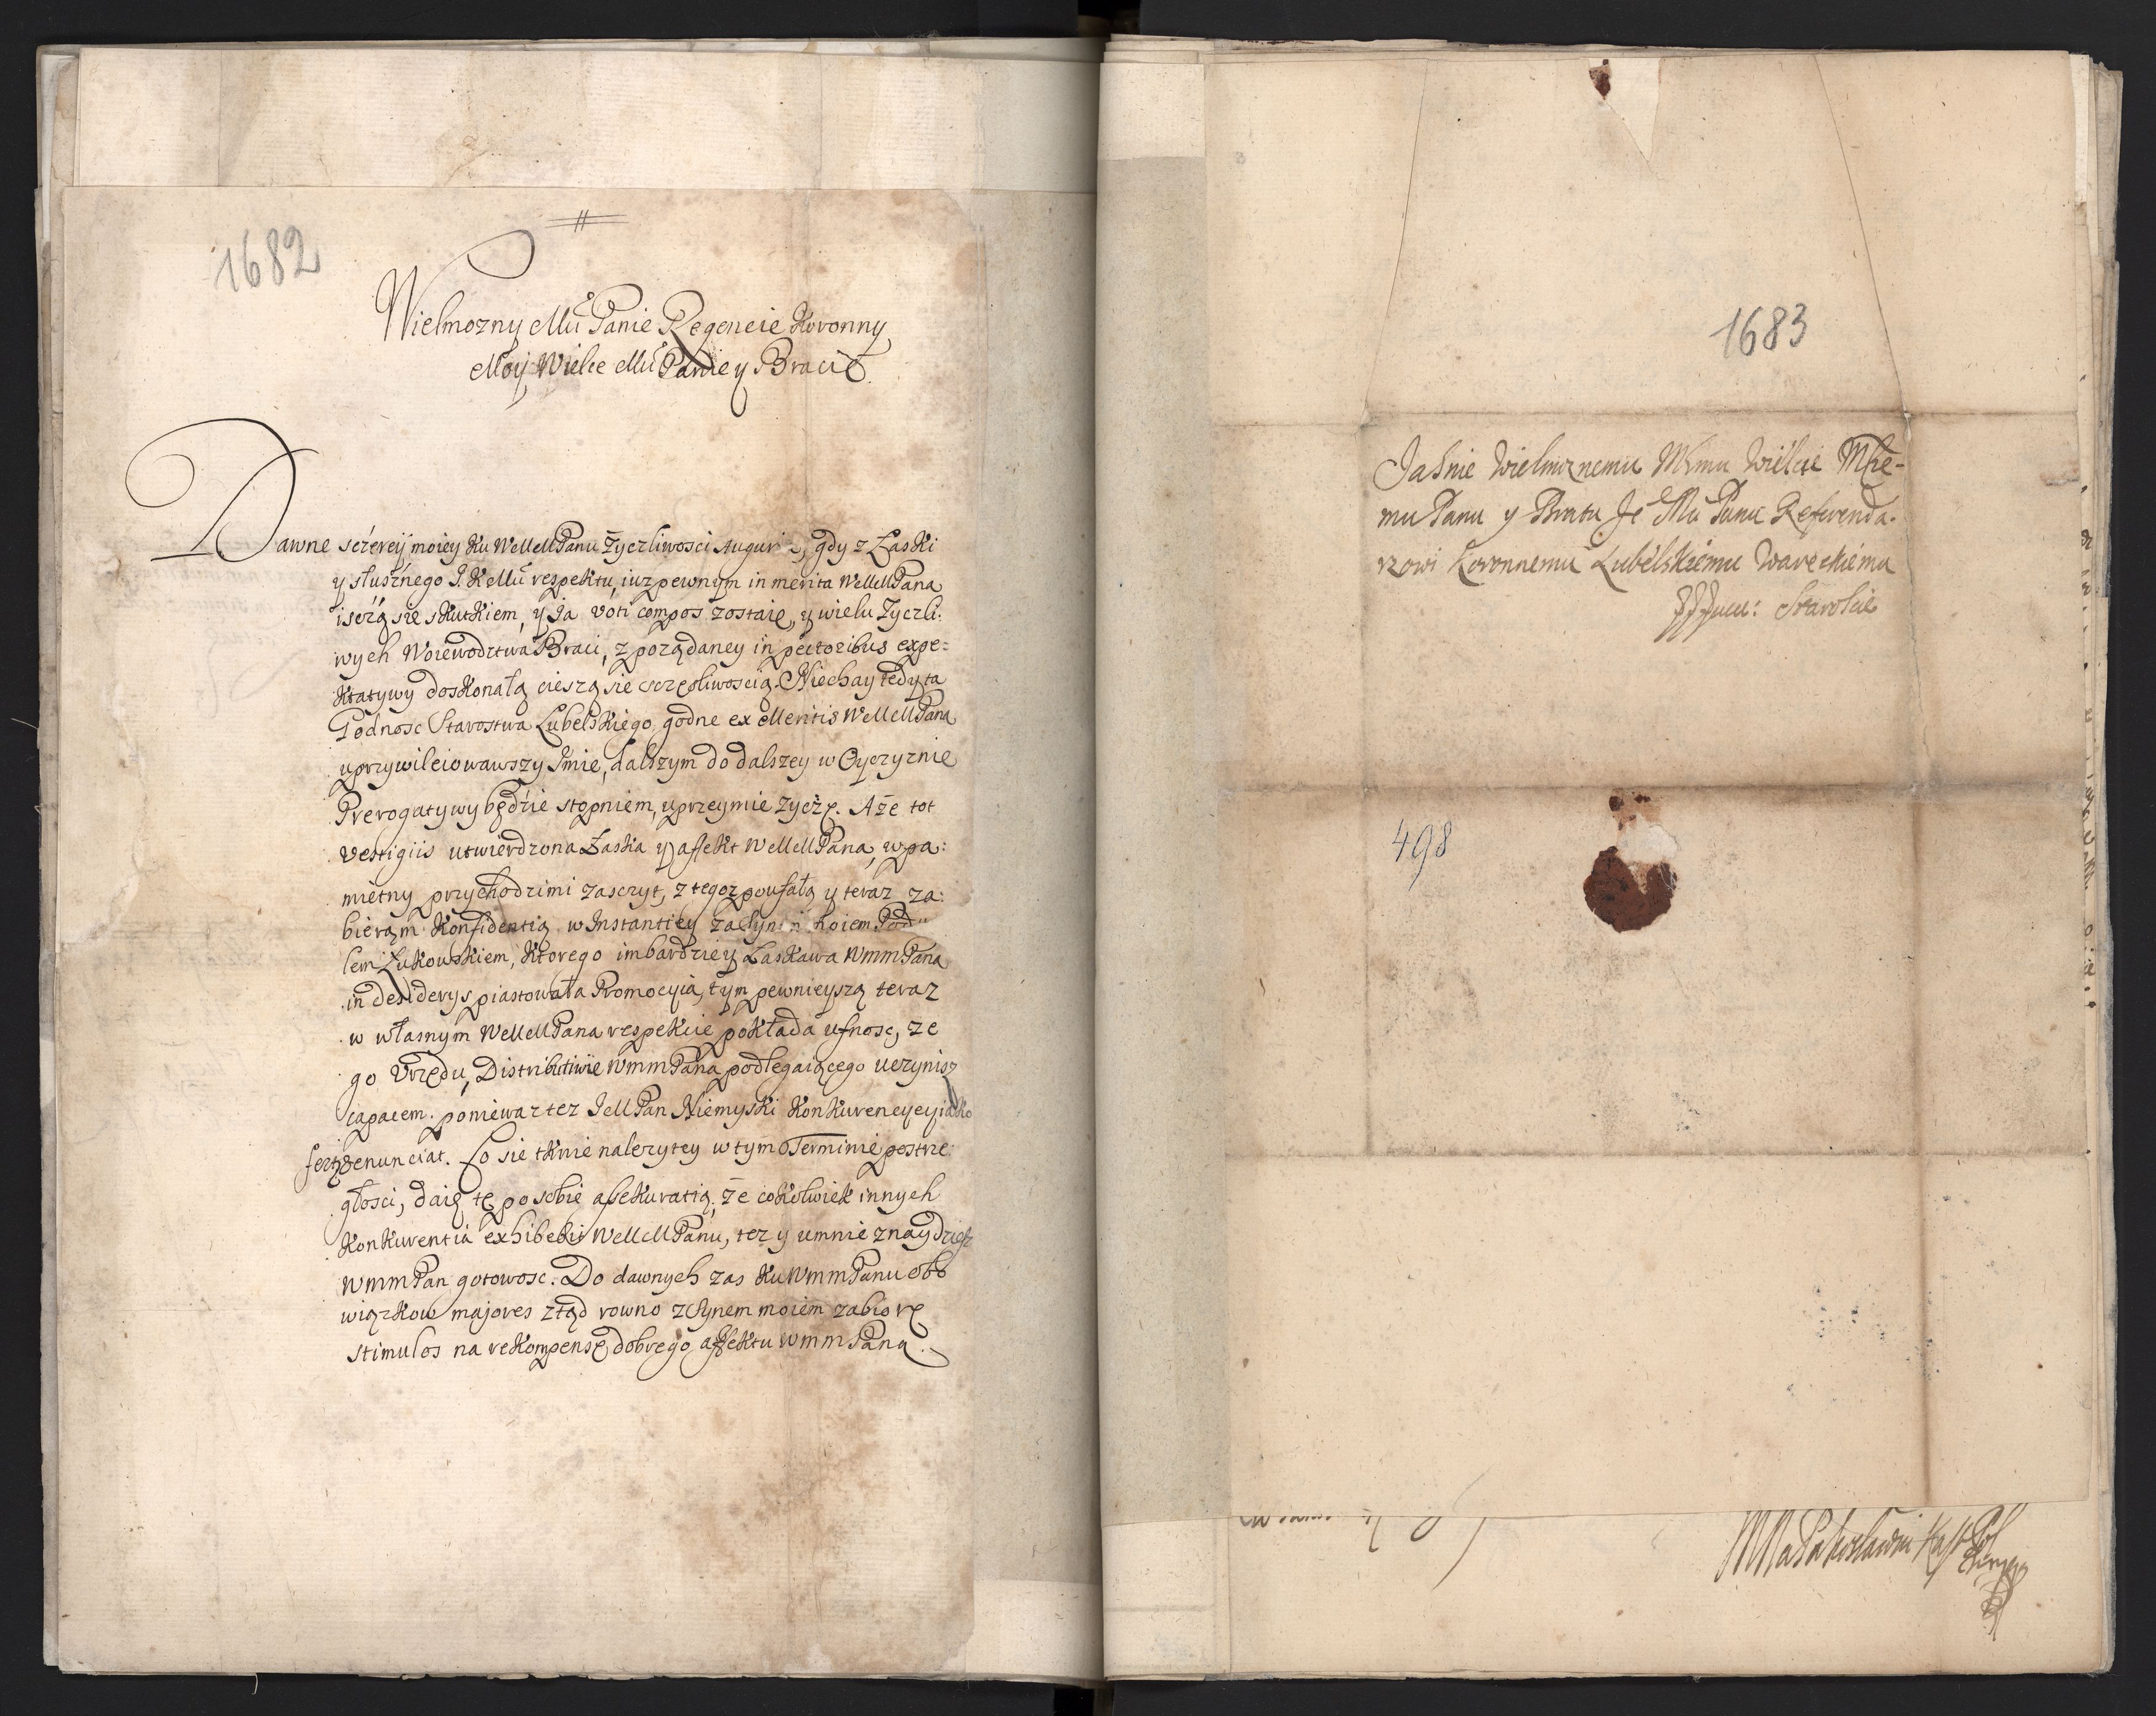 1682
Wielmozny Mći Panie Regencie Koronny
Moy Wielce Mći Panie y Bracie.
Dawne sczerey moiey Ku WeMMPanu Zyczliwosci Auguria, gdy z Łaski
y słusznego J. K. Mći respektu, iuz pewnym in merita WeMMPana
isczą się skutkiem, y Ja voti compos zostaię, y wielu Zyczli:
wych Woiewodztwa Braci, z porządaney in pectoribus expe=
ktatywy doskonałą cieszą się szczęsliwoscią. Niechay tedy ta
Godnosc Starostwa Lubelskiego, godne ex Meritis WeMMPana
uprzywileiowawszy Jmie, dalszym do dalszey w Oyczyznie
Prerogatywy będzie stopniem, uprzeymie zyczę. A że tot
vestigiis utwierdzona Łaska y affekt WeMMPana, w pa:
miętny przychodzi mi zasczyt, z tegoz poufałą y teraz za:
bieram Konfidentią w Instantiey za Synem moiem Pod
lem Łukowskiem, Ktorego im bardziey Łaskawa WmmPana
in desiderys piastowała Promocyia, tym pewnieyszą teraz
w własnym WeMMPana respekcie pokłada ufnosc, ze
go Vrzędu, Distributiwie WmmPana podlegaiącego uczynisz
capacem. poniewaz tez JeMPan Niemyski Konkurencyey iako
fertur renunciat. Co się tknie nalezytey w tym Terminie postrze:
głosci, daię tę po sobie assekuratią, że cokolwiek innych
Konkurentia exhibebit WeMMPanu, tez y u mnie znaydziesz
WmmPan gotowosc. Do dawnych zas Ku WmmPanu obo
wiązkow majores ztąd rowno z Synem moiem zabiorę
stimulos na rekompensę dobrego affektu WmmPana.
1683
Jasnie Wielmoznemu Memu Wielce Mscie-
mu Panu y Bratu Je Mci Panu Referenda-
rzowi Koronnemu Lubelskiemu Wareckiemu
Staroscie
498